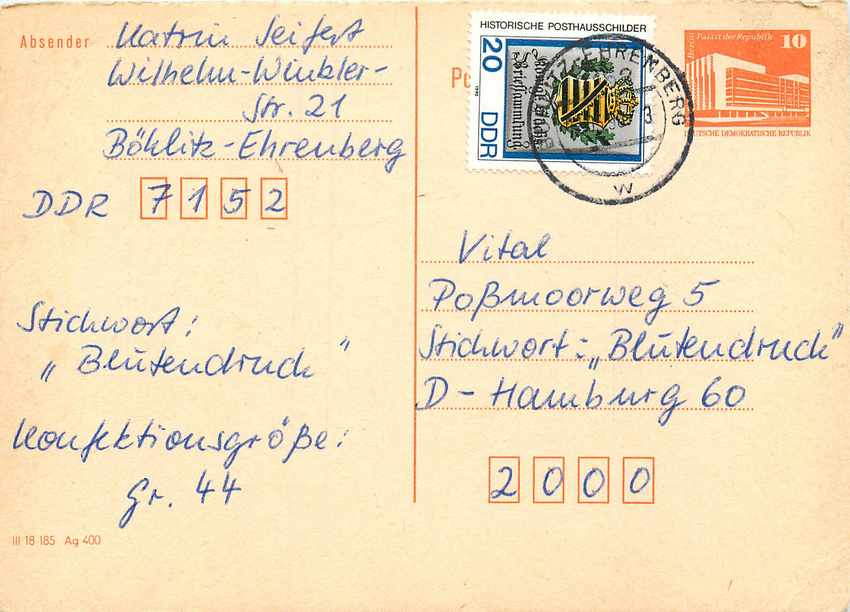 Absender
Katrin Seifert
Wilhelm-Winkler-
Str. 21
Böhlitz-Ehrenberg
DDR 7152
Stichwort:
„Blütendruck"
Konfektionsgröße:
Gr. 44
III 18 185 Ag 400
HISTORISCHE POSTHAUSSCHILDER
20
DDR
1990
EHRENBERG
W
Berlin Palast der Republik
10
DEUTSCHE DEMOKRATISCHE REPUBLIK
Vital
Poßmoorweg 5
Stichwort: „Blütendruck"
D-Hamburg 60
2000